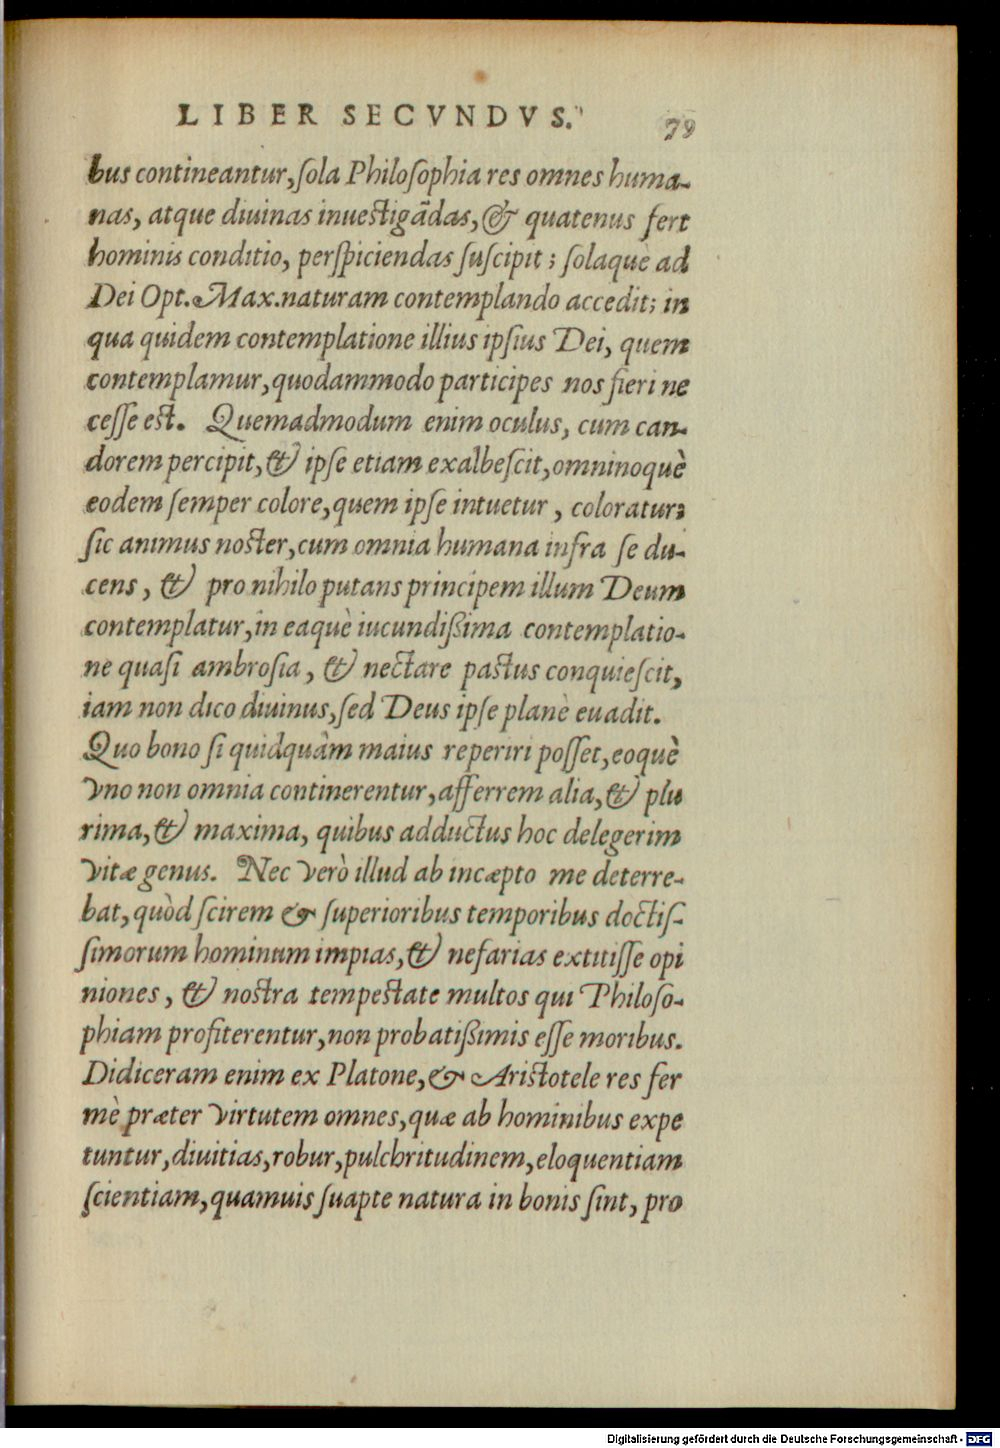 LIBER SECVNDVS. 79
bus contineantur, ſola Philoſophia res omnes huma-
nas, atque diuinas inueſtigãdas, & quatenus fert
hominis conditio, perſpiciendas ſuſcipit; ſolaquè ad
Dei Opt. Max. naturam contemplando accedit; in
qua quidem contemplatione illius ipſius Dei, quem
contemplamur, quodammodo participes nos fieri ne
ceſſe eſt. Quemadmodum enim oculus, cum can-
dorem percipit, & ipſe etiam exalbeſcit, omninoquè
eodem ſemper colore, quem ipſe intuetur, coloratur:
ſic animus noſter, cum omnia humana infra ſe du-
cens, & pro nihilo putans principem illum Deum
contemplatur, in eaquè iucundißima contemplatio-
ne quaſi ambroſia, & nectare paſtus conquieſcit,
iam non dico diuinus, ſed Deus ipſe planè euadit.
Quo bono ſi quidquâm maius reperiri poſſet, eoquè
vno non omnia continerentur, afferrem alia, & plu
rima, & maxima, quibus adductus hoc delegerim
vitæ genus. Nec verò illud ab incæpto me deterre-
bat, quòd ſcirem & ſuperioribus temporibus doctiſ-
ſimorum hominum impias, & nefarias extitiſſe opi
niones, & noſtra tempeſtate multos qui Philoſo-
phiam profiterentur, non probatißimis eſſe moribus.
Didiceram enim ex Platone, & Ariſtotele res fer
mè præter virtutem omnes, quæ ab hominibus expe
tuntur, diuitias, robur, pulchritudinem, eloquentiam
ſcientiam, quamuis ſuapte natura in bonis ſint, pro
Digitalisierung gefördert durch die Deutsche Forschungsgemeinschaft - DFG